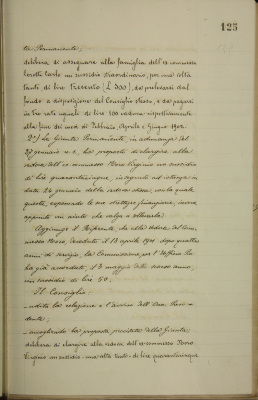 125
ta Permanente,
delibera di assegnare alla famiglia dell'ex-commesso
Carlo un sussidio straordinario, per una volta
tanto di lire Trecento (£ 300), da prelevarsi dal
fondo a disposizione del Consiglio stesso, e da pagarsi
in tre rate uguali di lire 100 cadauna rispettivamente
alla fine dei mesi di Febbraio, Aprile e Giugno 1902.
2º) La Giunta Permanente, in adunanza del
27 gennaio u.s., ha proposto di elargire alla
vedova dell'ex commesso Virginio un sussidio
di lire quarantacinque, in seguito ad istanza in
data 24 gennaio della vedova stessa, colla quale
questa, esponendo le sue strettezze finanziarie, invoca
appunto un aiuto che valga a sollevarla.
Aggiunge il Referente, che alla vedova del com-
messo, deceduto il 13 aprile 1901 dopo quattro
anni di servizio, la Commissione per l'
ha già accordato, il 3 maggio dello scorso anno,
un sussidio di lire 50.
Il Consiglio,
- udita la relazione e l'avviso dell'On. Presi-
dente,
- accogliendo la proposta presentata dalla Giunta,
delibera di elargire alla vedova dell'ex-commesso
Virginio un sussidio - una volta tanto - di lire quarantacinque